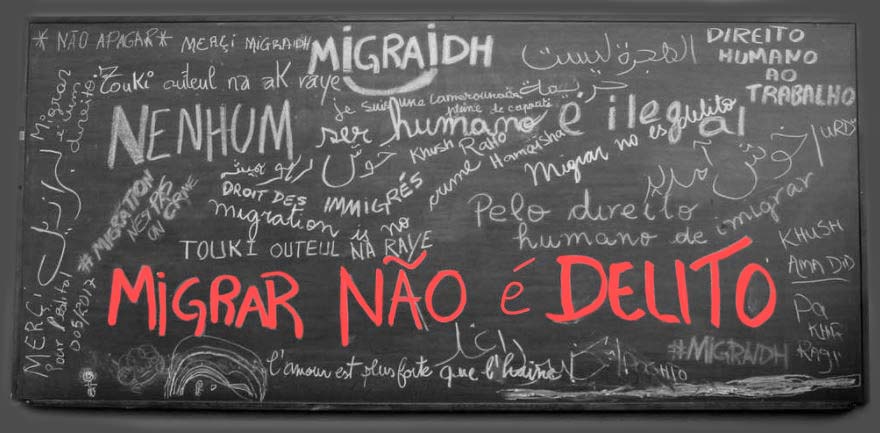 * NÃO APAGAR *
MERÇI MIGRAIDH
MiGRAiDH
الهجرة ليست
جريمة
DIREITO
HUMANO
AO
TRABALHO
Migrar
é um
direito
Touki outeul na aK raye
je suis une Camerounaise
pleine de capacité
NENHUM
ser humano é ilegal
Migrar no es delito
خوش
Khush Raho
Hamaisha
خوش آمدید
URDU
البرازيل
#MIGRATION
N'EST PAS
UN CRIME
DROIT DES
IMMIGRÉS
migration is no crime
Pelo direito
humano de imigrar
TOUKI OUTEUL NA RAYE
KHUSH
AMADID
MiGRAR NÃO é DELITO
MERÇI
Pour
005/2017
Pa
#MIGRAIDH
l'amour est plus forte que l'haine